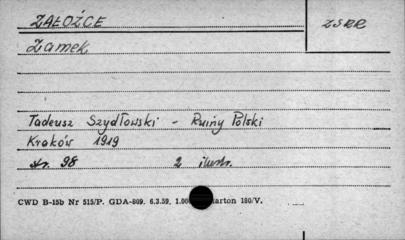 ZAŁOŹCE
ZSRR
Zamek
Tadeusz Szydłowski - Ruiny Polski
Kraków 1919
str. 98 2 ilustr.
CWD B-15b Nr 515/P. GDA-809. 6.3.59. 1.00 karton 180/V.